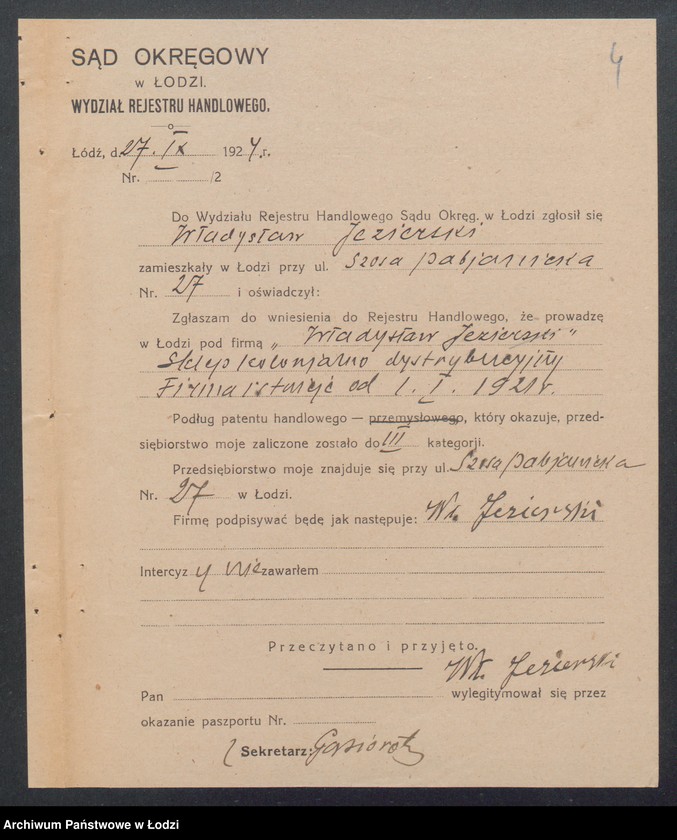 4
SĄD OKRĘGOWY
W ŁODZI.
WYDZIAŁ REJESTRU HANDLOWEGO.
Łódź, d. 27. IX 1924.r.
Nr. /2
Do Wydziału Rejestru Handlowego Sądu Okręg. w Łodzi zgłosił się
Władysław Jezierski
zamieszkały w Łodzi przy ul. Szosa pabjanicka
Nr. 27 i oświadczył:
Zgłaszam do wniesienia do Rejestru Handlowego, że prowadzę
w Łodzi pod firmą „Władysław Jezierski"
Sklep kolonjalno dystrybucyjny
Firma istnieje od 1. I. 1921 r.
Podług patentu handlowego — przemysłowego, który okazuje, przed-
siębiorstwo moje zaliczone zostało do III kategorji.
Przedsiębiorstwo moje znajduje się przy ul. Szosa pabjanicka
Nr. 27 w Łodzi.
Firmę podpisywać będę jak następuje: Wł. Jezierski
Intercyzy nie zawarłem
Przeczytano i przyjęto.
Wł. Jezierski
Pan wylegitymował się przez
okazanie paszportu Nr.
Sekretarz:
Archiwum Państwowe w Łodzi